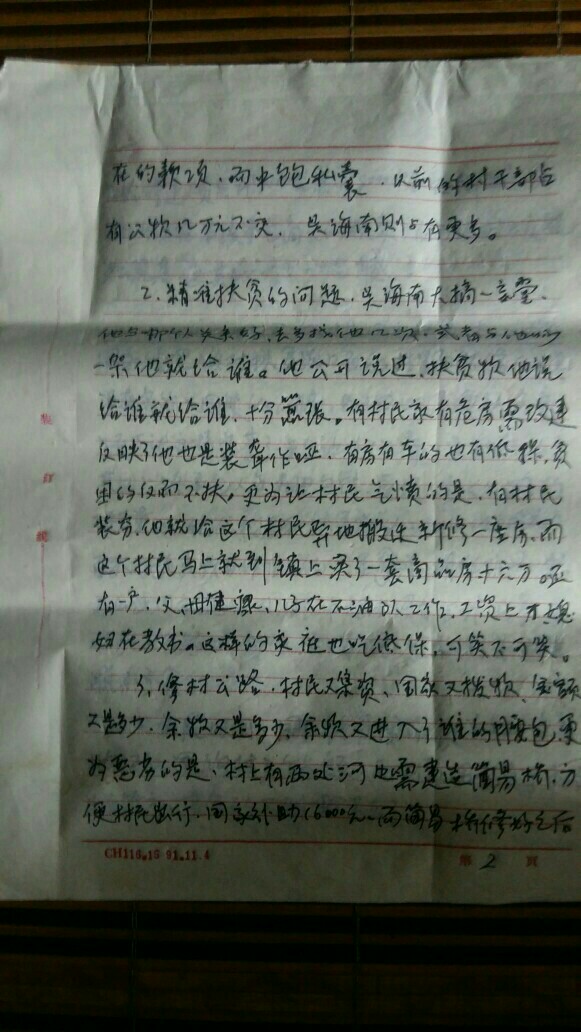 在的款项,而中饱私囊,以前的村干部占
有公款几万元不交,吴海南则占有更多。
2、精准扶贫的问题,吴海南大搞一言堂,
他与那个人关系好,去多找他几次,或者与他
一架他就给谁。他公开说过,扶贫款他说
给谁就给谁,十分嚣张。有村民家有危房需改建
反映了他也是装聋作哑,有房有车的也有低保,贫
困的反而不扶,更为让村民气愤的是,有村民
装穷,他就给这个村民异地搬迁新修一座房,而
这个村民马上就到镇上买了一套商品房十六万。还
有一户,父、母健康,儿子在石油队工作,工资上万,媳
妇在教书。这样的家庭也吃低保,可笑不可笑。
3、修村公路,村民又集资,国家又拨款,金额
又是多少,余款又是多少,余款又进入了谁的腰包,更
为恶劣的是,村上有两处河也需建造简易桥,方
便村民出行,国家补助16000元,而简易桥修好之后
装
订
线
CH110.15 91.11.4
第 2 页